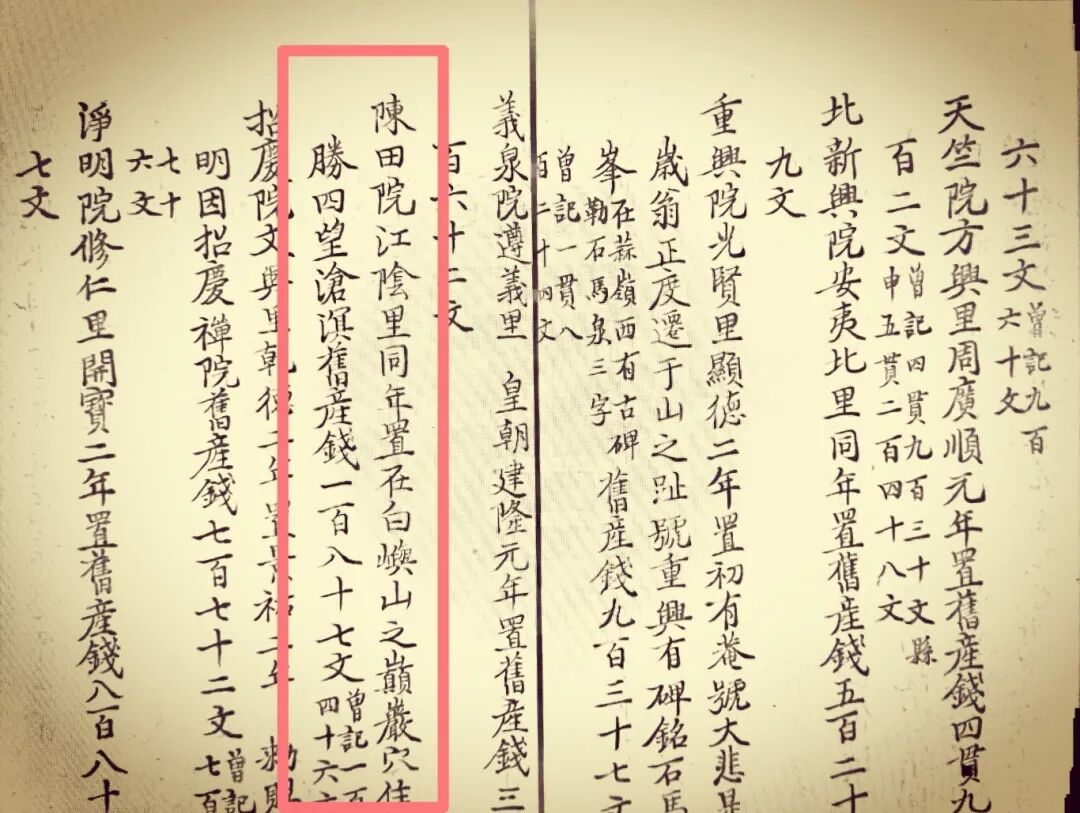 六十三文曾記九百
六十文
天竺院方興里周廣順元年置舊產錢四貫九
百二文曾記四貫九百三十文縣
申五貫二百四十八文
北新興院安夷北里同年置舊產錢五百二十
九文
重興院光賢里顯德二年置初有菴號大悲
歲翁正度遷于山之趾號重興有碑銘石馬
峯在蒜嶺西有古碑
勒石馬泉三字舊產錢九百三十七文
曾記一貫八
百二十四文
義泉院遵義里 皇朝建隆元年置舊產錢三
百六十二文
陳田院江陰里同年置在白嶼山之巔巖穴佳
勝四望滄溟舊產錢一百八十七文曾記一百
四十六
招慶院文興里乾德二年置景祐二年 勑賜
明因招慶禪院舊產錢七百七十二文曾記
七百
七十
六文
淨明院修仁里開寶二年置舊產錢八百八十
七文